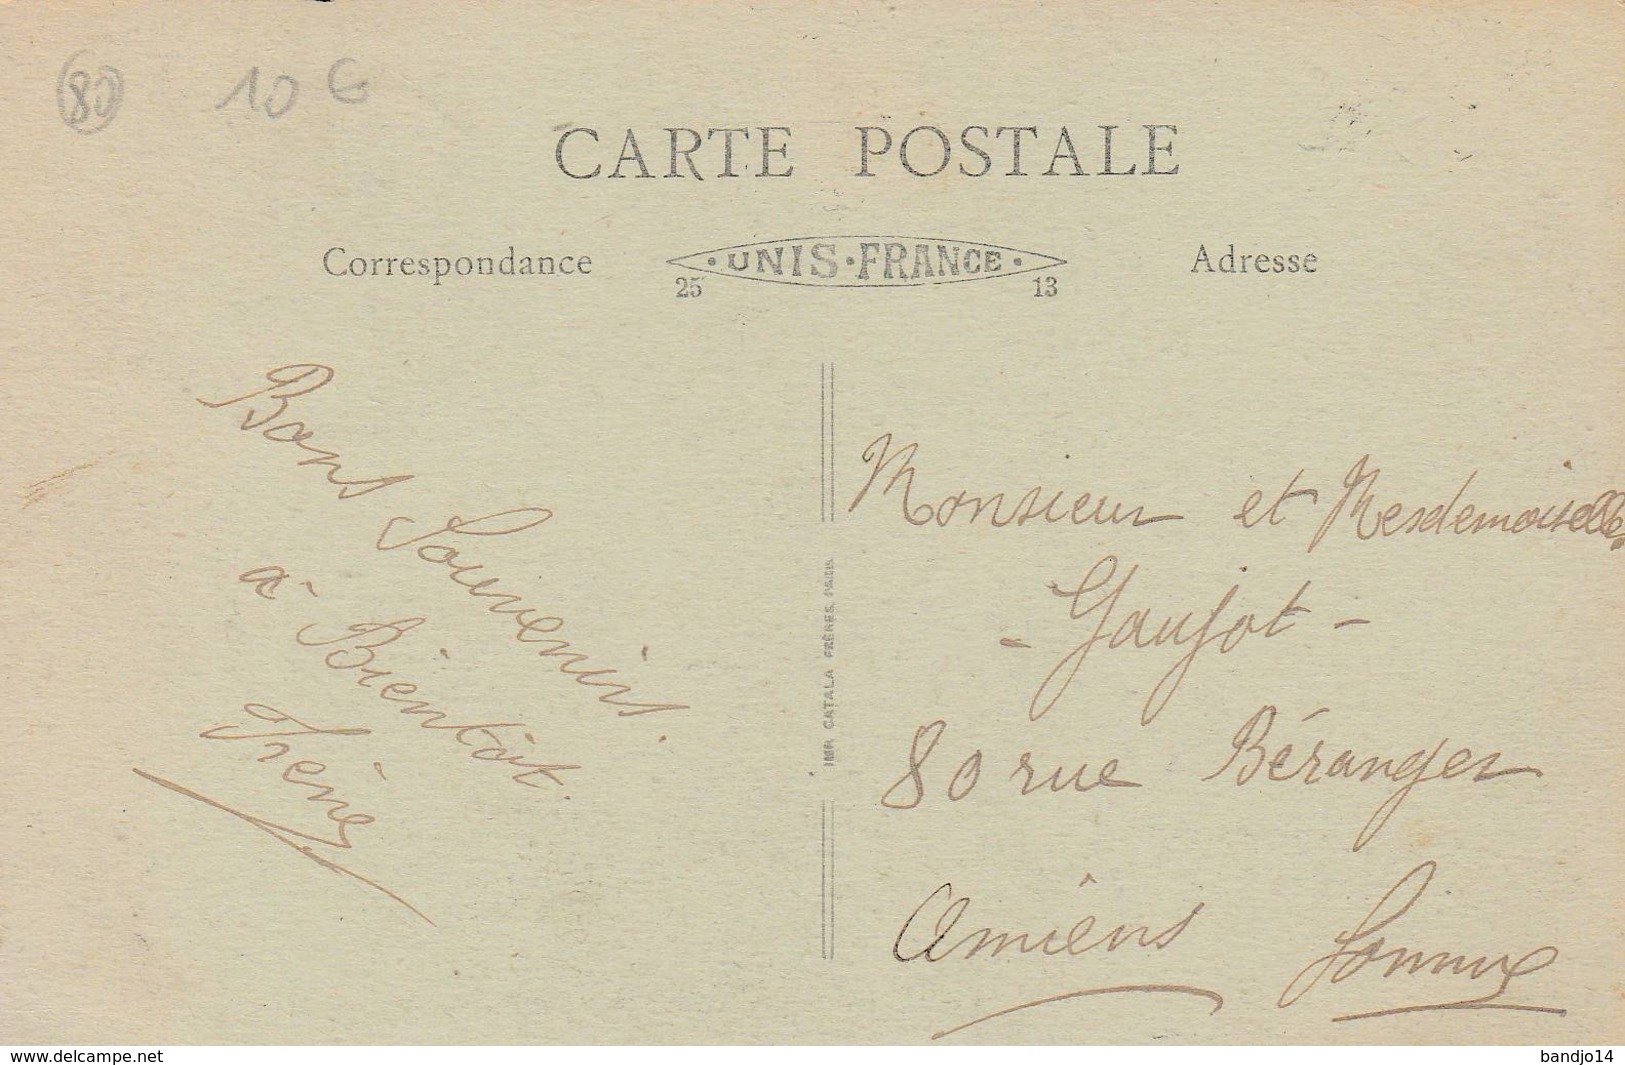 80 10 €
CARTE POSTALE
Correspondance
· UNIS · FRANCE ·
25 13
Adresse
Bons Souvenirs.
à Bientôt.
Irène
IMP. CATALA FRÈRES, PARIS
Monsieur et Mesdemoiselles
- Gaujot -
80 rue Béranger
Amiens Somme
www.delcampe.net
bandjo14